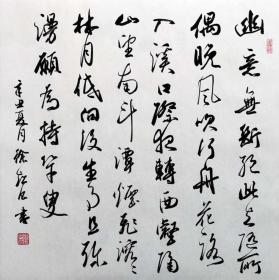 幽意無斷絕此去隨所
偶晚風吹行舟花路
入溪口際夜轉西壑隔
山望南斗潭煙飛溶々
林月低向後生事且彌
漫願為持竿叟
辛丑夏月徐書